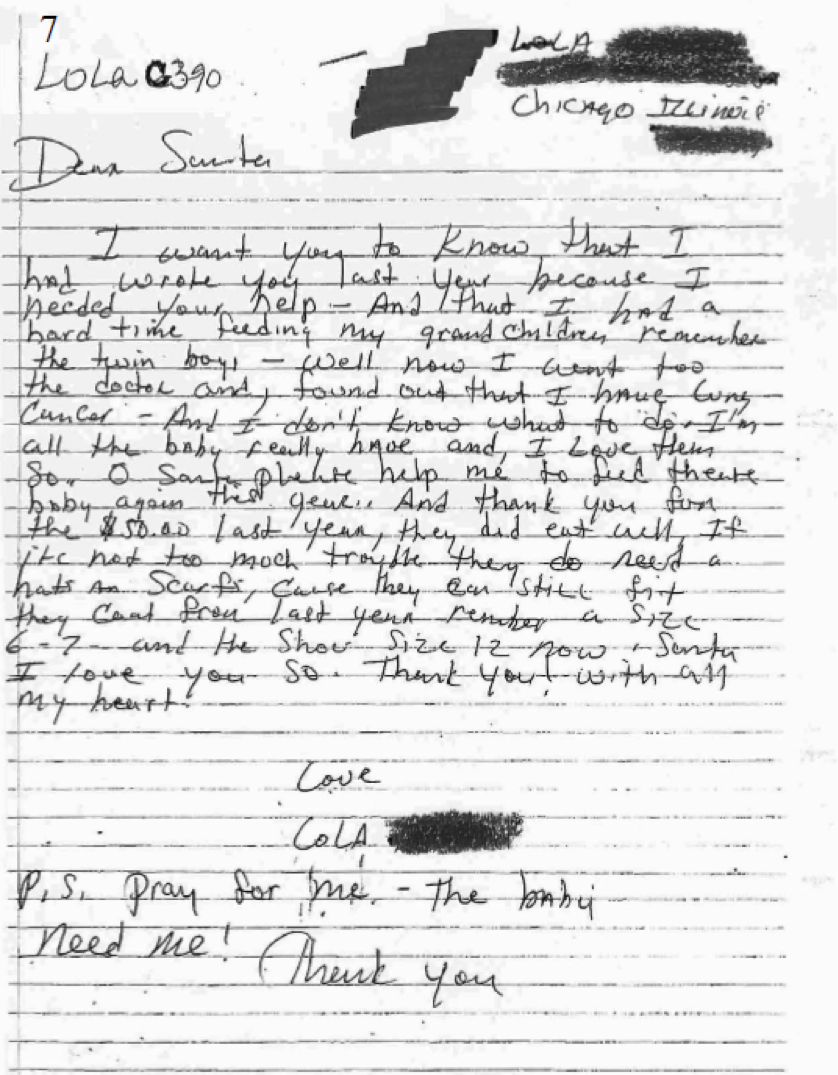 7
LoLa G390
LoLA
Chicago Illinois
Dear Santa
I want you to know that I
had wrote you last year because I
needed your help - And that I had a
hard time feeding my grandchildren remember
the twin boys - well now I went too
the doctor and, found out that I have Lung
Cancer - And I don't know what to do. I'm
all the baby really have and, I Love them
So. O Santa please help me to feed these
baby again this year.. And thank you for
the $50.00 last year, they did eat well, If
its not too much trouble they do need a
hats an Scarfs, Cause they can still fit
they Coat from last year rember a Size
6-7 - and the Shoe Size 12 now. Santa
I love you so. Thank you! with all
my heart.
Love
LoLA
P.S. pray for me. - The baby
need me!
Thank you